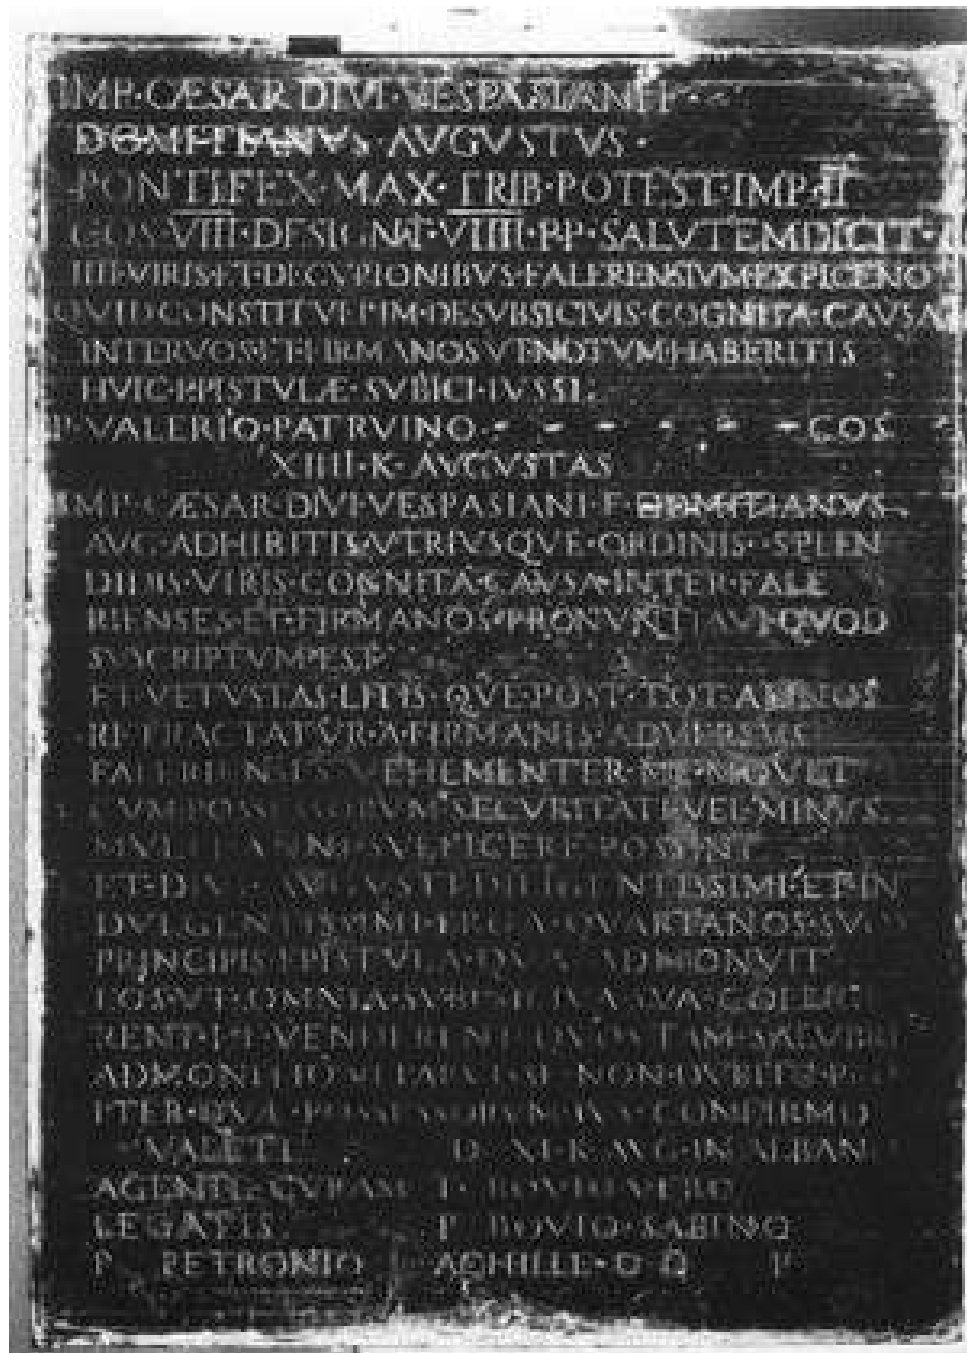 IMP·CÆSAR·DIVI·VESPASIANI·F·
DOMITIANVS·AVGVSTVS·
PONTIFEX·MAX·TRIB·POTEST·IMP·II
COS·VIII·DESIGNAT·VIIII·P·P·SALVTEM·DICIT·
IIII·VIRIS·ET·DECVRIONIBVS·FALERENSIVM·EX·PICENO
QVID·CONSTITVERIM·DE·SVBSICIVIS·COGNITA·CAVSA
INTER·VOS·ET·FIRMANOS·VT·NOTVM·HABERITIS
HVIC·EPISTVLÆ·SVBICI·IVSSI·
P·VALERIO·PATRVINO·COS
XIIII·K·AVGVSTAS
IMP·CÆSAR·DIVI·VESPASIANI·F·DOMITIANVS
AVG·ADHIBITIS·VTRIVSQVE·ORDINIS·SPLEN
DIDIS·VIRIS·COGNITA·CAVSA·INTER·FALE
RIENSES·ET·FIRMANOS·PRONVNTIAVI·QVOD
SVSCRIPTVM·EST
ET·VETVSTAS·LITIS·QVE·POST·TOT·ANNOS
RETRACTATVR·A·FIRMANIS·ADVERSVS
FALERIENSES·VEHEMENTER·ME·MOVET
CVM·POSSESSORVM·SECVRITATI·VEL·MINVS
MVLTI·ANNI·SVFFICERE·POSSINT
ET·DIVI·AVGVSTI·DILIGENTISSIMI·ET·IN
DVLGENTISSIMI·ERGA·QVARTANOS·SVOS
PRINCIPIS·EPISTVLA·QVA·ADMONVIT
EOS·VT·OMNIA·SVBSICIVA·SVA·COLLIGE
RENT·ET·VENDERENT·QVOS·TAM·SALVBRI
ADMONITIONI·PARVISSE·NON·DVBITO·PRO
PTER·QVAE·POSSESSORVM·IVS·CONFIRMO
VALETE D XI·K·AVG·IN·ALBANO
AGENTE·CVRAM T·BOVIO·VERO
LEGATIS P·BOVIO·SABINO
P PETRONIO ACHILLE·D D P